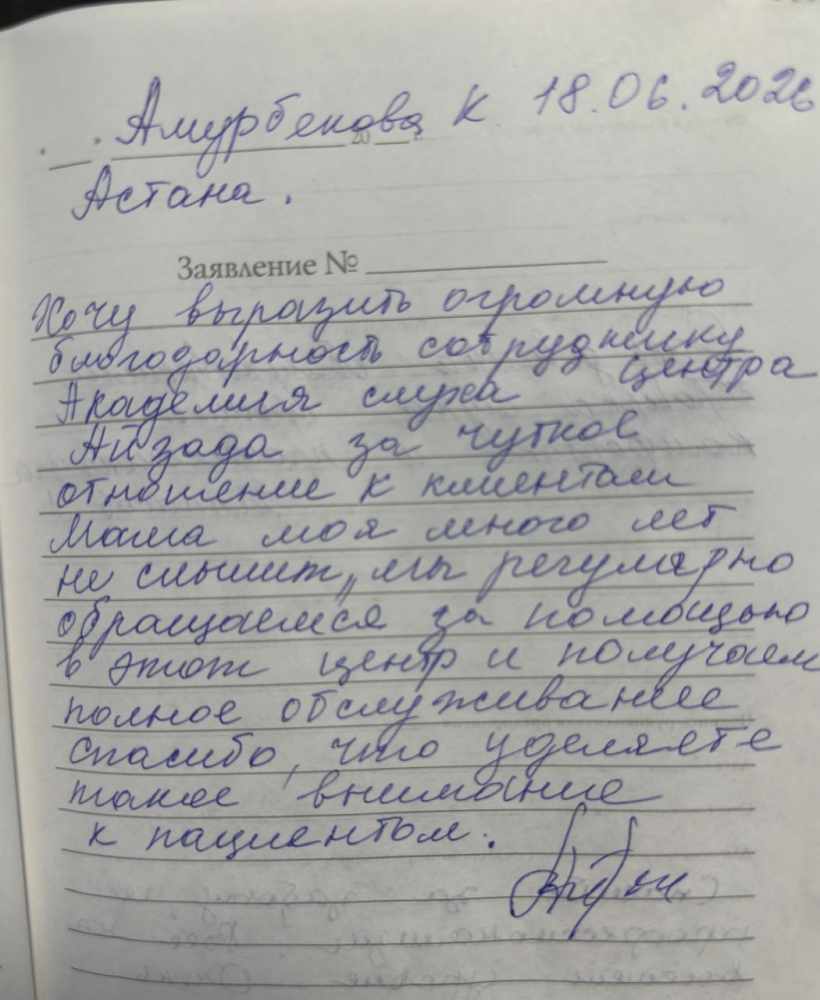 Амурбекова К 18.06.2026
20 г.
Астана.
Заявление №
Хочу выразить огромную
благодарность сотруднику
центра
Академия слуха
Айзада за чуткое
отношение к клиентам
Мама моя много лет
не слышит, мы регулярно
обращаемся за помощью
в этот центр и получаем
полное обслуживание
спасибо, что уделяете
такое внимание
к пациентом.